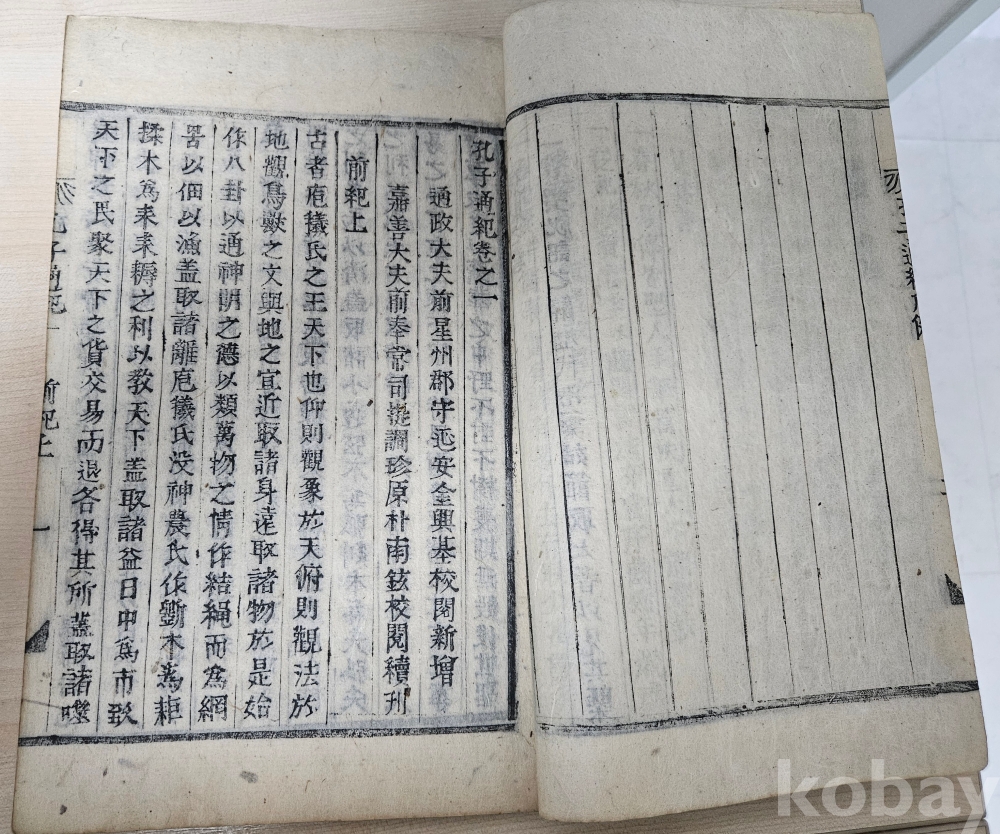 孔子通紀卷之一
通政大夫前星州郡守延安金興基校閱新增
嘉善大夫前奉常司提調珍原朴南鉉校閱續刊
前紀上
古者庖犧氏之王天下也仰則觀象於天俯則觀法於
地觀鳥獸之文與地之宜近取諸身遠取諸物於是始
作八卦以通神明之德以類萬物之情作結繩而爲網
罟以佃以漁盖取諸離庖犧氏没神農氏作斲木爲耜
揉木爲耒耒耨之利以敎天下盖取諸益日中爲市致
天下之民聚天下之貨交易而退各得其所盖取諸噬
孔子通紀一 前紀上 一
kobay